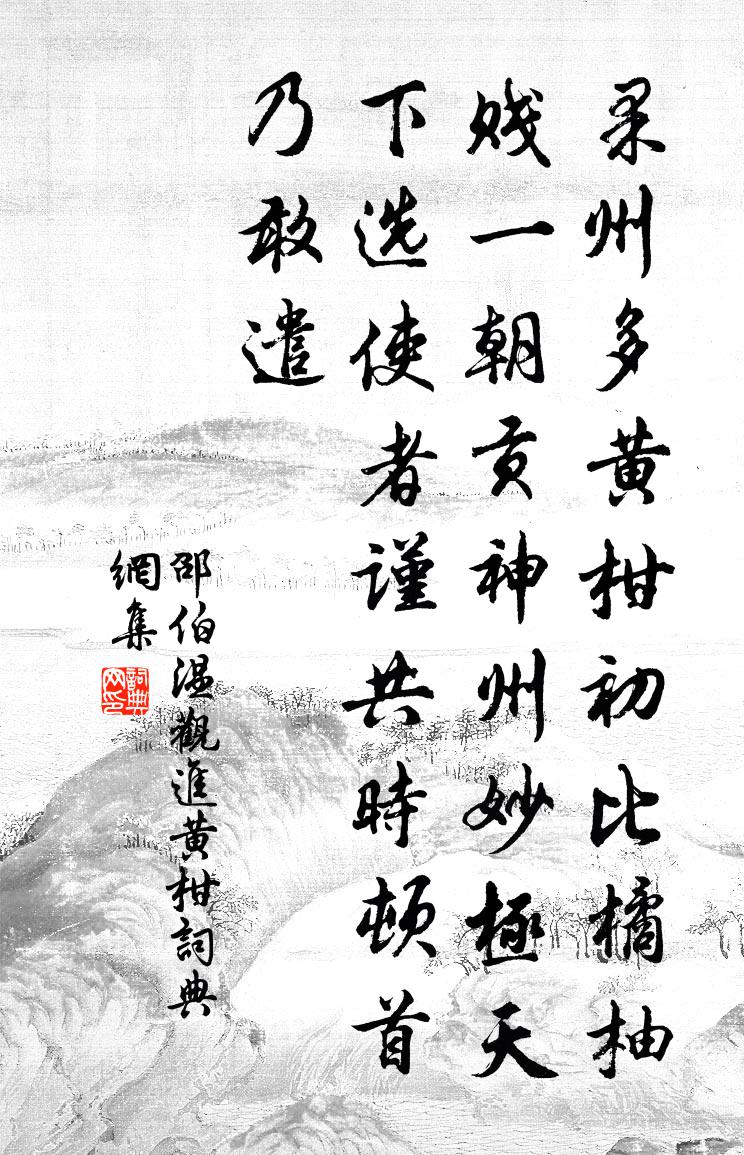 果州多黄柑初比橘柚
贱一朝贡神州妙極天
下选使者谨共時顿首
乃敢遣
邵伯温觀進黄柑詞典
網集
詞典
网印